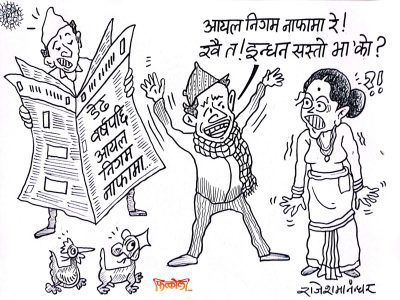 आयल निगम नाफामा रे!
खै त! इन्धन सस्तो भा'को?
डेढ
वर्षपछि
आयल
निगम
नाफामा..
?!!
फित्कौली
राजरामानन्धर